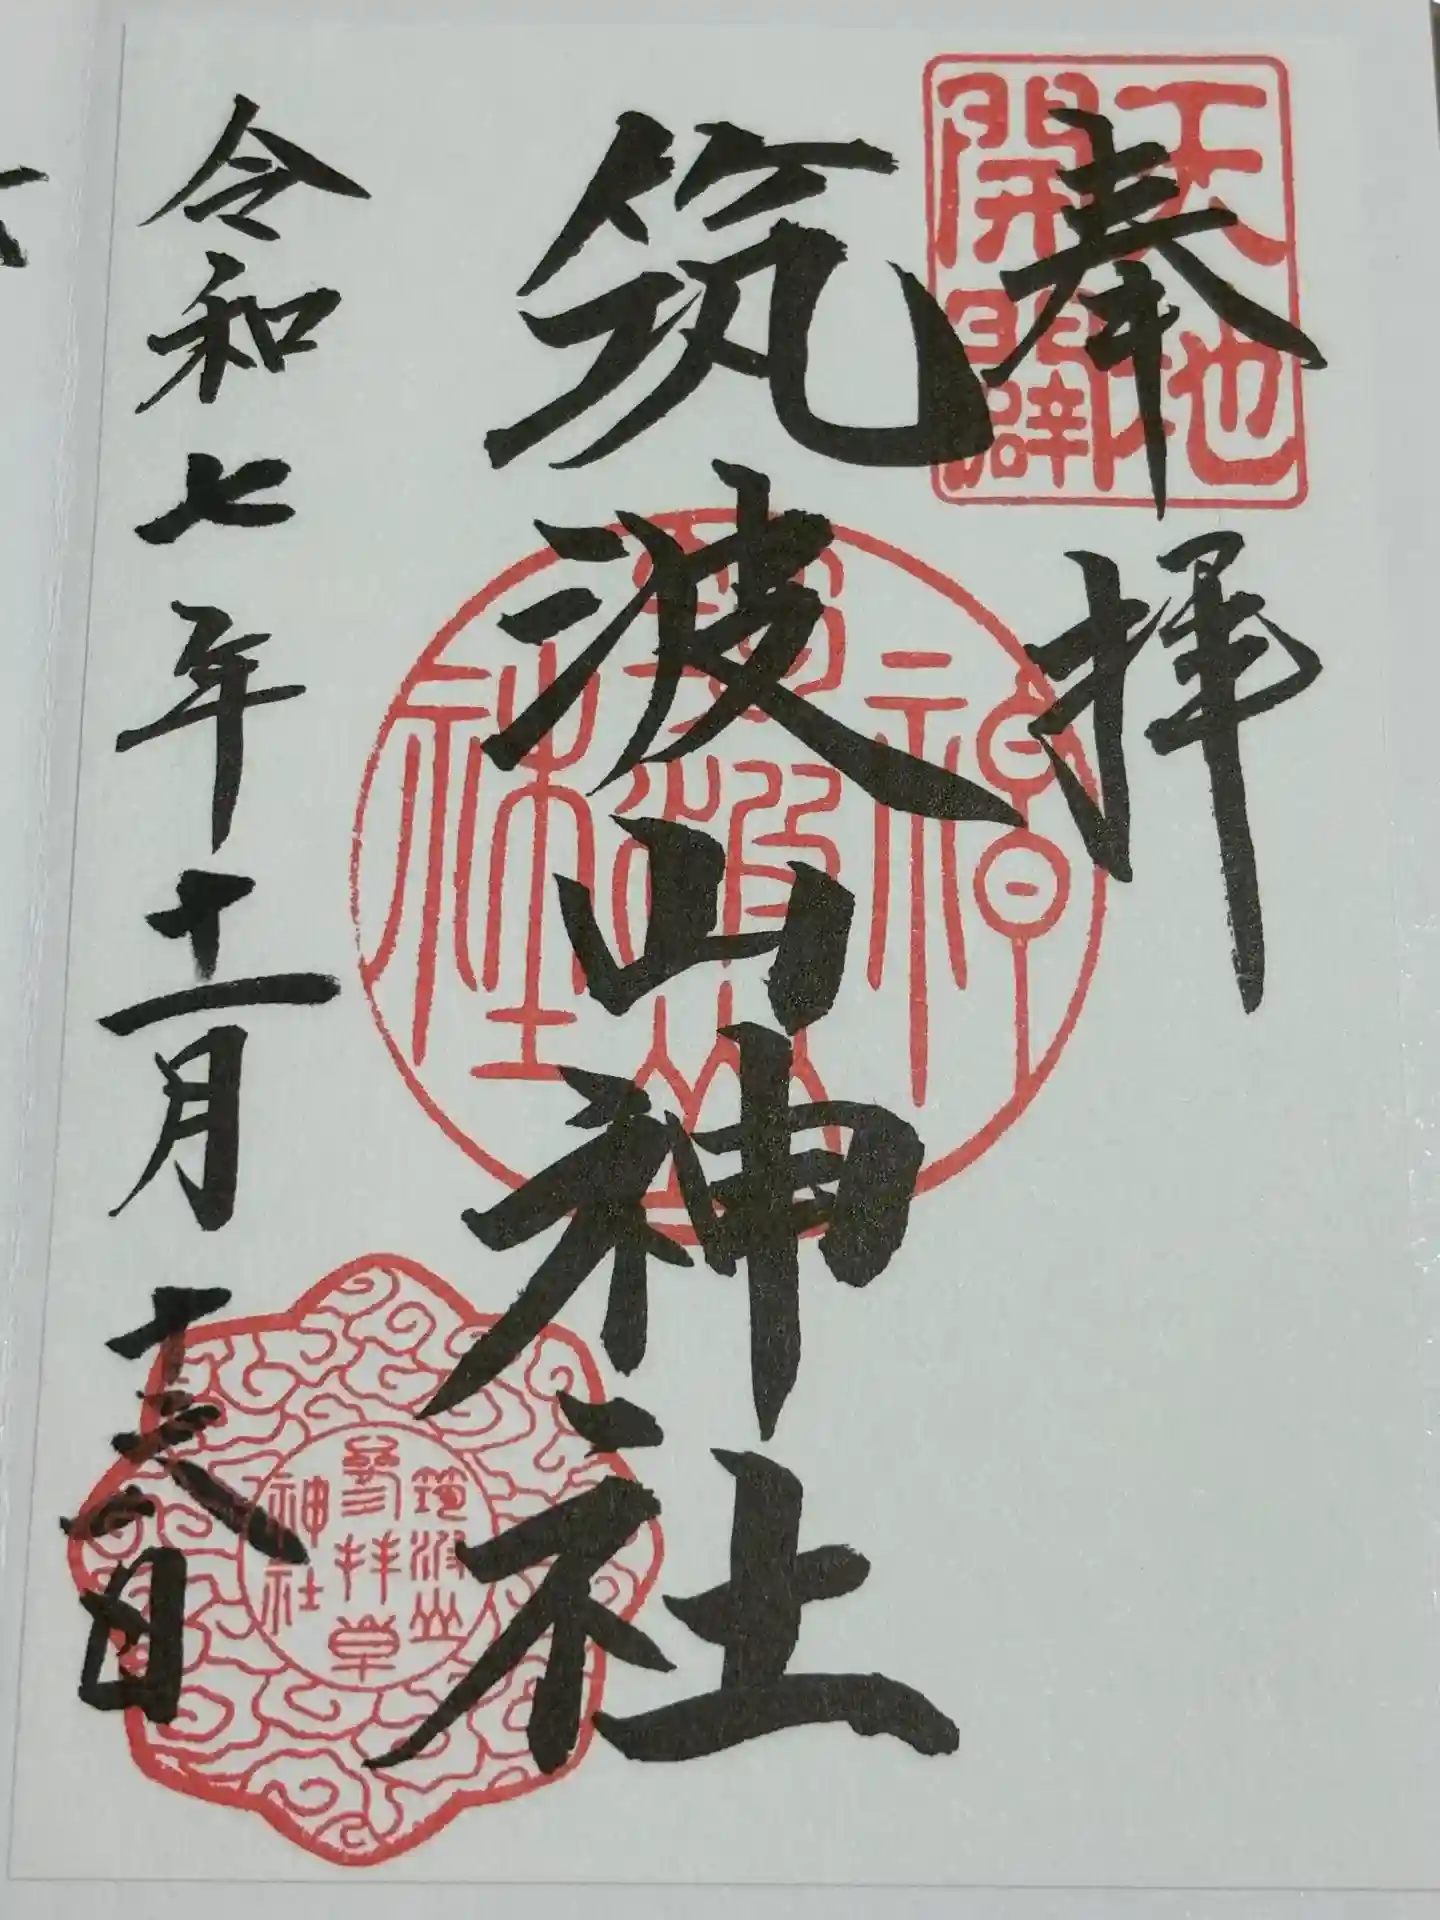 天地
開闢
奉拝
筑波山神社
神
筑波山
社
令和七年十一月十日
筑波山
參拝章
神社